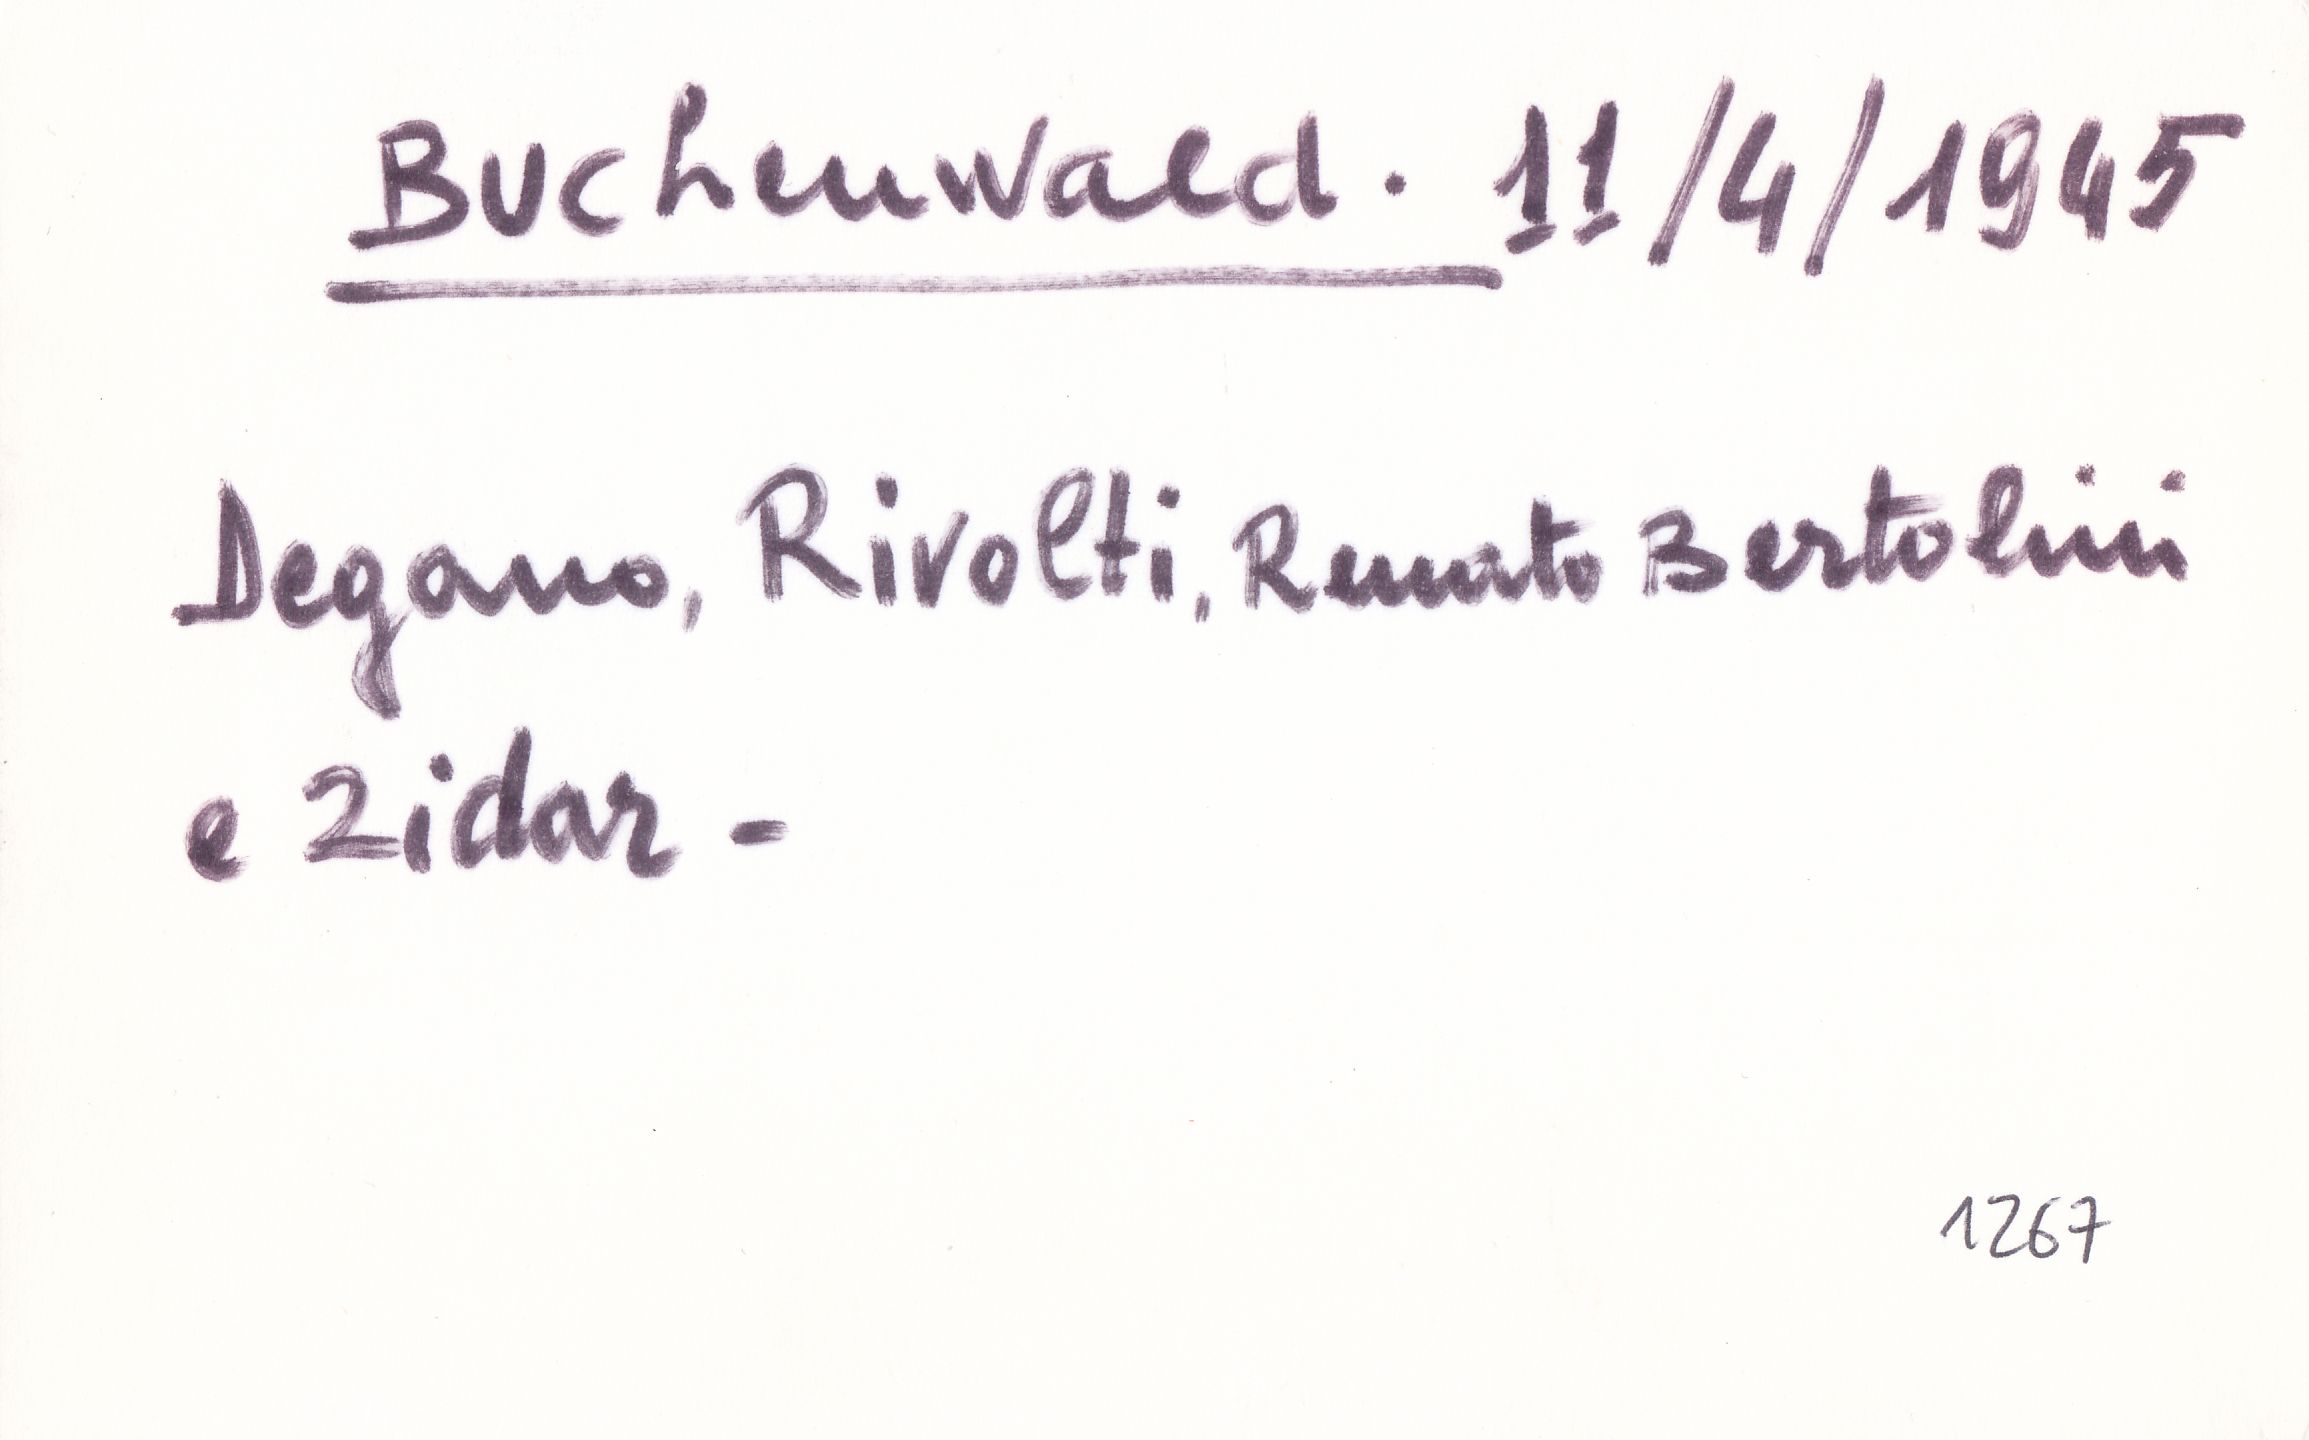 Buchenwald. 11/4/1945
Degano, Rivolti, Renato Bertolini
e Zidar -
1267